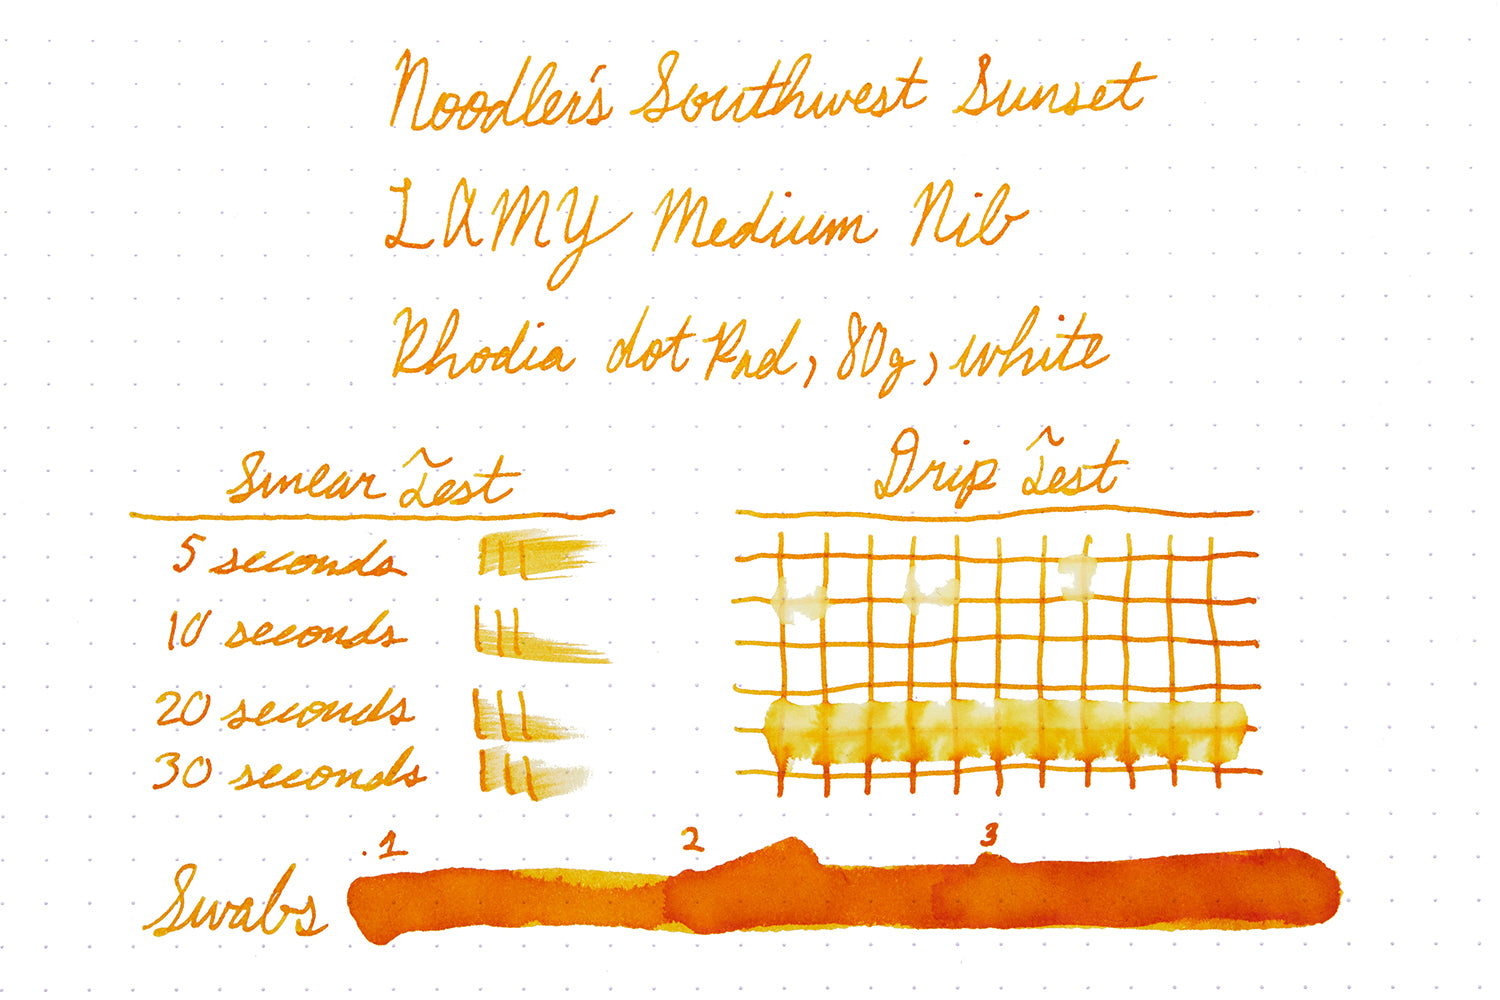 Noodler's Southwest Sunset
LAMY Medium Nib
Rhodia dot Pad, 80g, white
Smear Test
5 seconds
10 seconds
20 seconds
30 seconds
Drip Test
Swabs
1 2 3